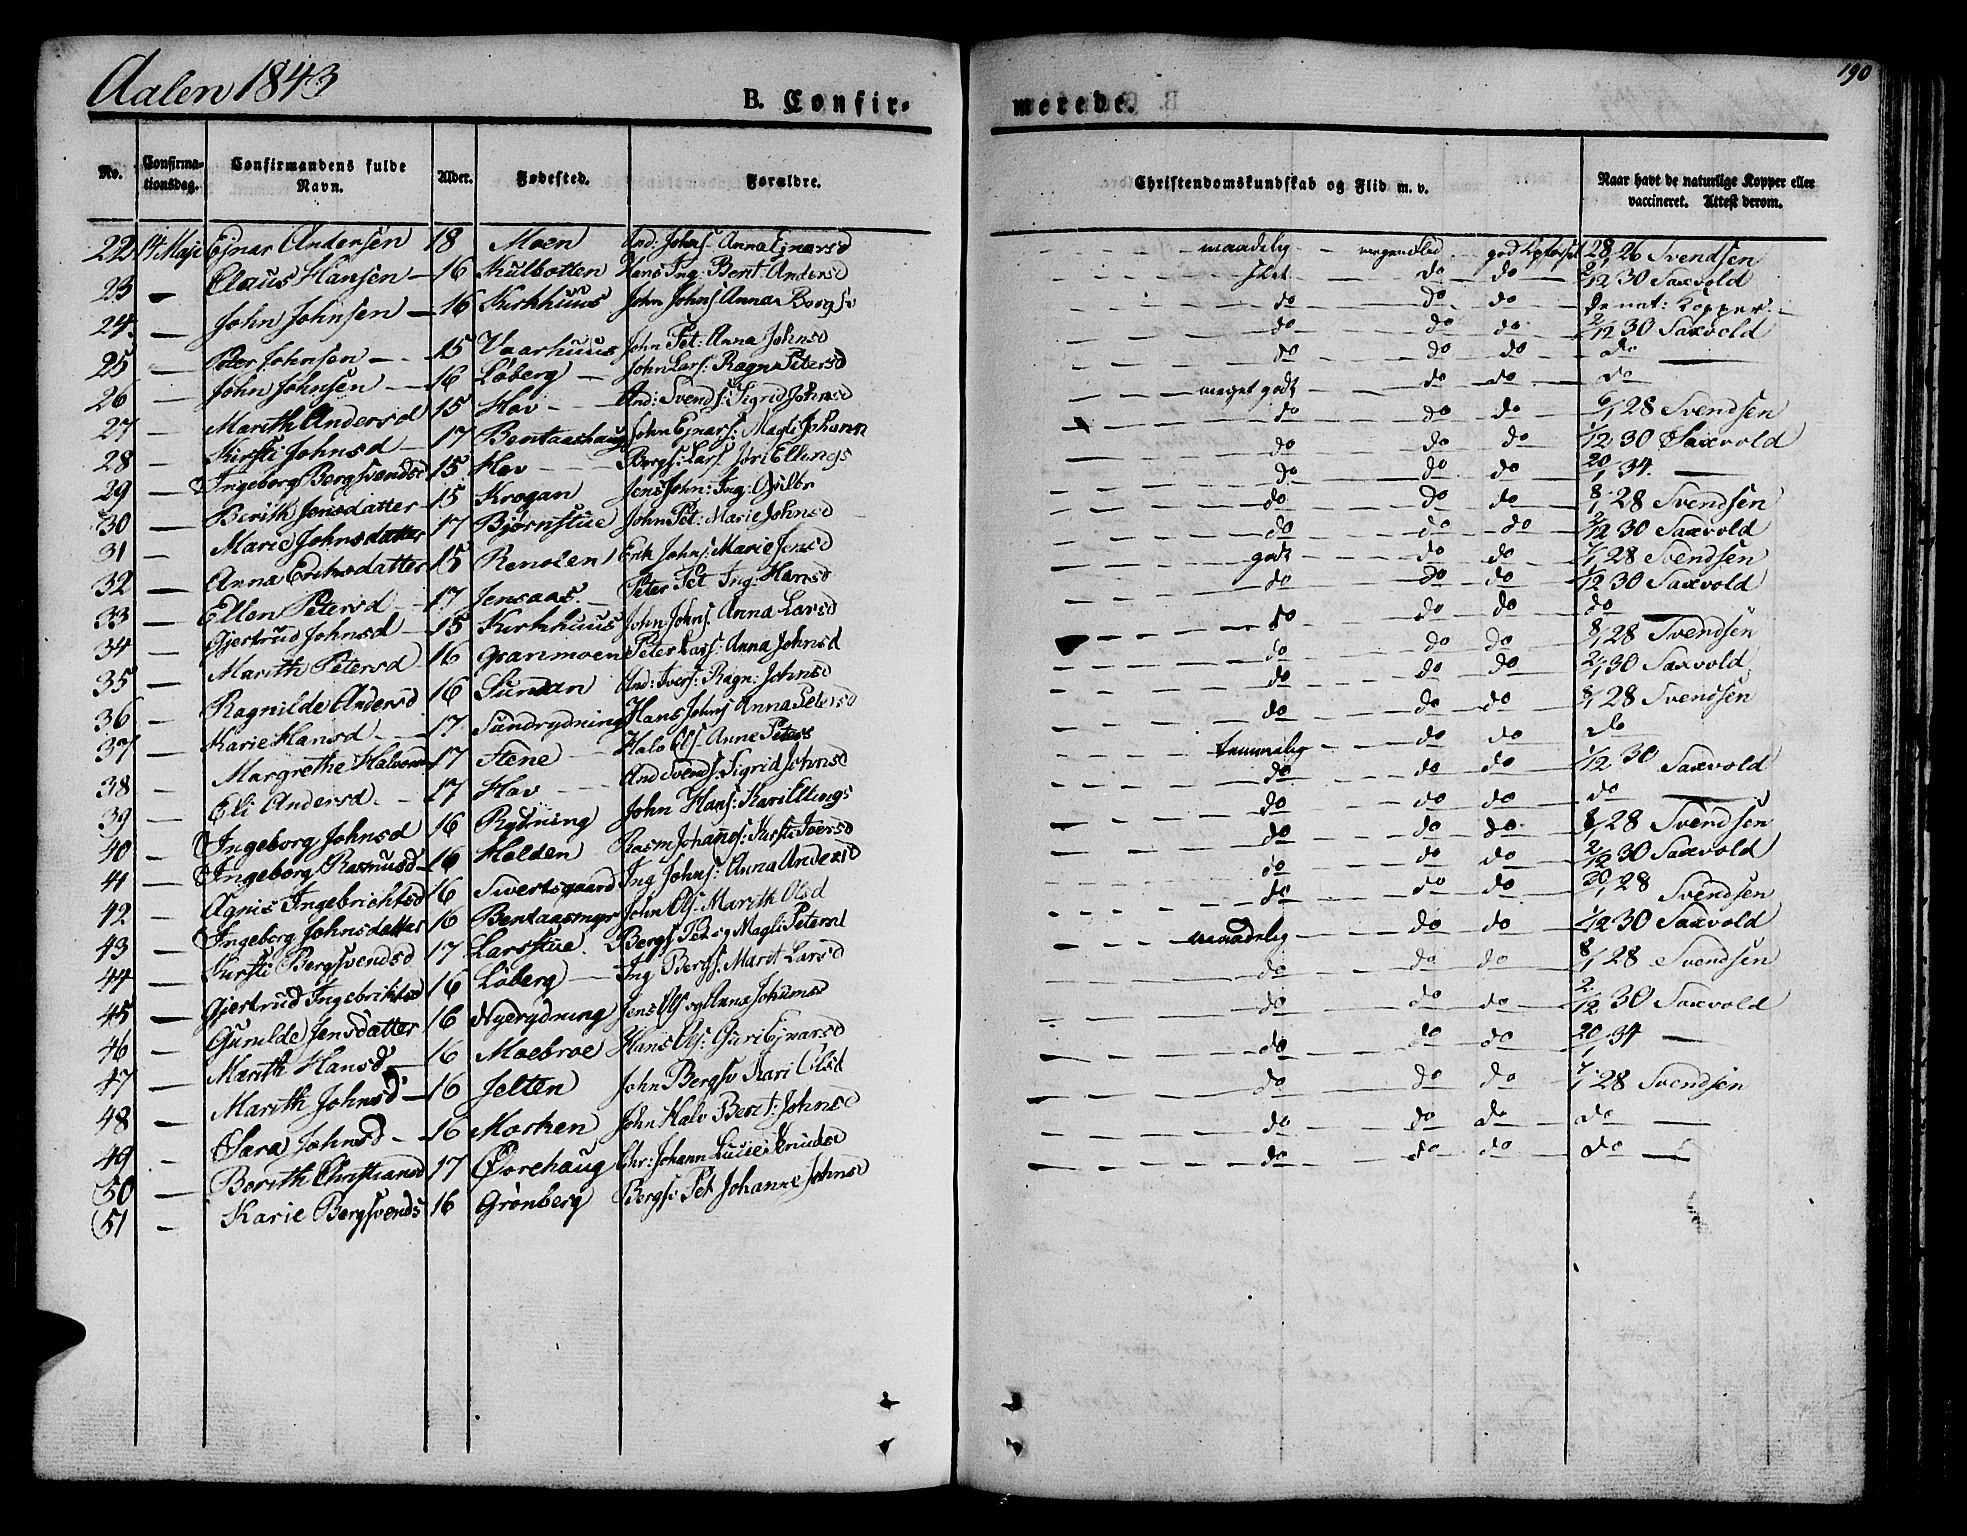 Aalen 1843
190
B. Confir-
merede.
No. Confirma-tionsdag. Confirmandens fulde Navn. Alder. Fødested. Forældre. Christendomskundskab og Flid m. v. Naar havt de naturlige Kopper eller vaccineret. Attest derom.
22 14 Maji Ejnar Andersen 18 Moen And: Johns: Anna Ejnarsd maadelig 28/1 26 Svendsen
23 — Claus Hansen — 16 Kulbotten Hans Ing: Berit Andersd slet do do 2/12 30 Saxvold
24 — John Johnsen — 16 Kirkhuus John Johns Anna Bergsv do do do De nat: Kopper
25 — Peter Johnsen — 15 Vaarhuus John Pet: Anna Johnsd do do do 2/12 30 Saxvold
26 — John Johnsen — 16 Løberg — John Lars: Ragn Petersd do do do do
27 — Marith Andersd 15 Hov — And: Svends: Sigrid Johnsd meget godt do do do
28 — Kirsti Johnsd — 17 Bentaashaug John Ejnars: Magli Johann do do do 6/1 28 Svendsen
29 — Ingeborg Bergsvendsd 15 Hov Bergs: Lars Jøri Ellings do do do 1/12 30 Saxvold
30 — Berith Jensdatter 15 Krogan Jens John: Ing: Gulbr do do do 20/1 34 —
31 — Marie Johnsdatter 17 Bjørnstue John Pet: Marie Johnsd do do do 8/1 28 Svendsen
32 — Anna Eriksdatter 15 Renolen Erik Johns Marie Jensd do do do 2/12 30 Saxvold
33 — Ellen Petersd — 17 Jensaas — Peter Pet Ing: Hansd godt do do 7/1 28 Svendsen
34 — Gjertrud Johnsd — 15 Kirkhuus John Johns. Anna Larsd do do do 1/12 30 Saxvold
35 — Marith Petersd 16 Granmoen Peter Lars: Anna Johnsd do do do do
36 — Ragnilde Andersd 16 Sundan And: Ivers: Ragn: Johnsd do do do 8/1 28 Svendsen
37 — Karie Hansd — 17 Sundrydning Hans Johns Anna Petersd do do do 30 Saxvold
38 — Margrethe Halvorsd 17 Stene — Halv Ols: Anne Peters do do do 8/1 28 Svendsen
39 — Eli Andersd — 17 Hov — And Svends: Sigrid Johnsd temmelig do do do
40 — Ingeborg Johnsd 16 Rydning John Hans: Kari Ellings do do do 1/12 30 Saxvold
41 — Ingeborg Rasmusd 16 Holden Rasm Johannes: Kirsti Iversd do do do do
42 — Agnis Ingebrichtsd 16 Sivertsgaard Ing Johns: Anna Andersd do do do 8/1 28 Svendsen
43 — Ingeborg Johnsdatter 16 Bentaasmyr John Ols: Marith Olsd do do do 2/12 30 Saxvold
44 — Kirsti Bergsvendsd 17 Larsstue. Bergs Pet og Magli Petersd do do do 20/1 28 Svendsen
45 — Gjertrud Ingebriktsd 16 Løberg — Ing Bergs: Marit Larsd maadelig do do 1/12 30 Saxvold
46 — Gunilde Jensdatter 16 Nyerydning Jens Ols og Anna Johannsd do do do 8/1 28 Svendsen
47 — Marith Hansd — 16 Moebroe Hans Ols: Guri Ejnarsd do do do 2/12 30 Saxvold
48 — Marith Johnsd — 16 Jelten John Bergsv Kari Olsd do do do 20/1 34 —
49 — Sara Johnsd — 16 Morken John Halv Berit: Johnsd do do do 7/1 28 Svendsen
50 — Berith Christiansd 17 Øorehaug Chr: Johann Lucie Knudsd do do do do
51 — Karie Bergsvends 16 Grønberg Bergsv Pet Johanne Johnsd do do do do